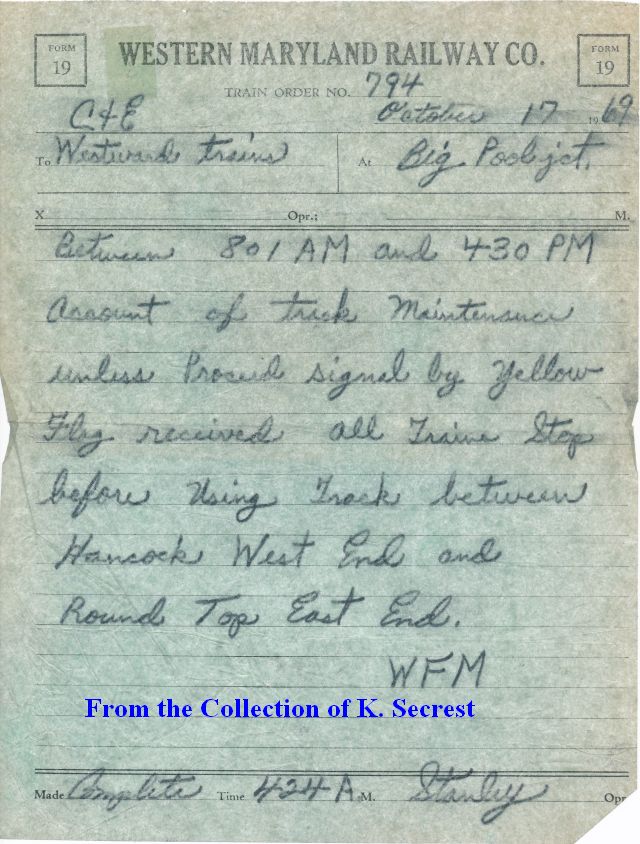 FORM 19 WESTERN MARYLAND RAILWAY CO. FORM 19
TRAIN ORDER NO. 794
C&E October 17 1969
To Westward trains At Big Pool jct.
X Opr.: M.
Between 801 AM and 430 PM
Account of track Maintenance
unless Proceed signal by Yellow
Flag received all Trains Stop
before Using Track between
Hancock West End and
Round Top East End.
WFM
From the Collection of K. Secrest
Made Complete Time 424 A.M. Stanley Opr